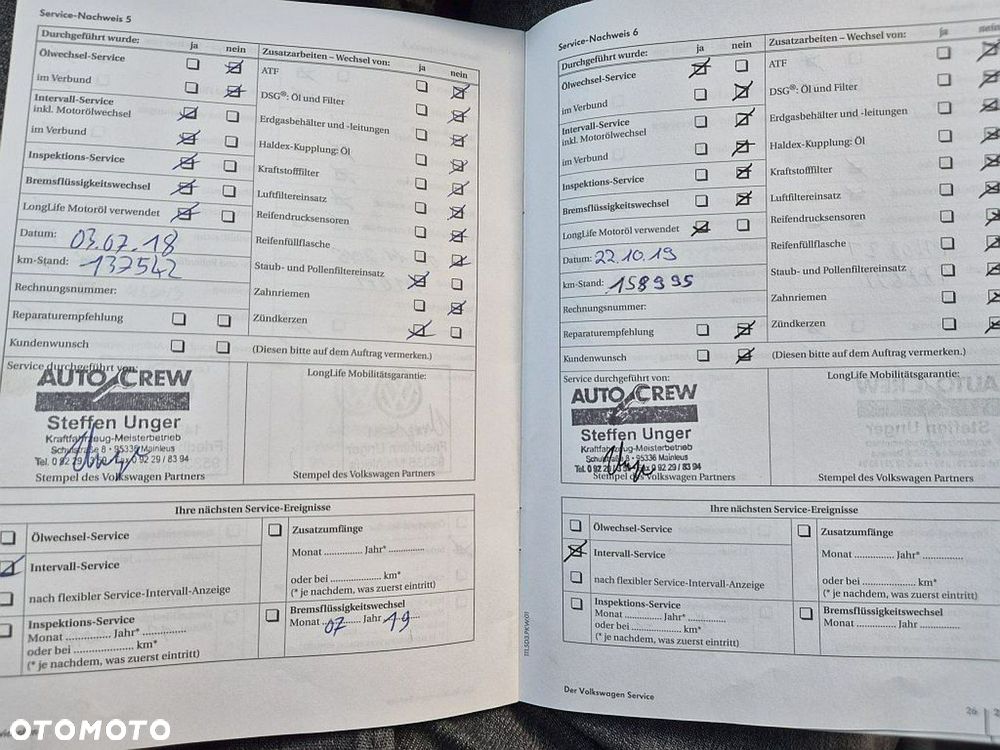 Service-Nachweis 5
Durchgeführt wurde: ja nein
Ölwechsel-Service
im Verbund
Intervall-Service
inkl. Motorölwechsel
im Verbund
Inspektions-Service
Bremsflüssigkeitswechsel
LongLife Motoröl verwendet
Datum: 03.07.18
km-Stand: 137542
Rechnungsnummer:
Reparaturempfehlung
Kundenwunsch
Zusatzarbeiten – Wechsel von: ja nein
ATF
DSG®: Öl und Filter
Erdgasbehälter und -leitungen
Haldex-Kupplung: Öl
Kraftstofffilter
Luftfiltereinsatz
Reifendrucksensoren
Reifenfüllflasche
Staub- und Pollenfiltereinsatz
Zahnriemen
Zündkerzen
(Diesen bitte auf dem Auftrag vermerken.)
Service durchgeführt von:
AUTO CREW
Steffen Unger
Kraftfahrzeug-Meisterbetrieb
Schulstraße 8 • 95336 Mainleus
Stempel des Volkswagen Partners
LongLife Mobilitätsgarantie:
Stempel des Volkswagen Partners
Ihre nächsten Service-Ereignisse
Ölwechsel-Service
Intervall-Service
nach flexibler Service-Intervall-Anzeige
Inspektions-Service
Monat .............. Jahr* ..............
oder bei ..................... km*
(* je nachdem, was zuerst eintritt)
Zusatzumfänge
Monat .............. Jahr* ..............
oder bei ..................... km*
(* je nachdem, was zuerst eintritt)
Bremsflüssigkeitswechsel
Monat 07 Jahr 19
Service-Nachweis 6
Durchgeführt wurde: ja nein
Ölwechsel-Service
im Verbund
Intervall-Service
inkl. Motorölwechsel
im Verbund
Inspektions-Service
Bremsflüssigkeitswechsel
LongLife Motoröl verwendet
Datum: 22.10.19
km-Stand: 158995
Rechnungsnummer:
Reparaturempfehlung
Kundenwunsch
Zusatzarbeiten – Wechsel von: ja nein
ATF
DSG®: Öl und Filter
Erdgasbehälter und -leitungen
Haldex-Kupplung: Öl
Kraftstofffilter
Luftfiltereinsatz
Reifendrucksensoren
Reifenfüllflasche
Staub- und Pollenfiltereinsatz
Zahnriemen
Zündkerzen
(Diesen bitte auf dem Auftrag vermerken.)
Service durchgeführt von:
AUTO CREW
Steffen Unger
Kraftfahrzeug-Meisterbetrieb
Schulstraße 8 • 95336 Mainleus
Stempel des Volkswagen Partners
LongLife Mobilitätsgarantie:
Stempel des Volkswagen Partners
Ihre nächsten Service-Ereignisse
Ölwechsel-Service
Intervall-Service
nach flexibler Service-Intervall-Anzeige
Inspektions-Service
Monat .............. Jahr* ..............
oder bei ..................... km*
(* je nachdem, was zuerst eintritt)
Zusatzumfänge
Monat .............. Jahr* ..............
oder bei ..................... km*
(* je nachdem, was zuerst eintritt)
Bremsflüssigkeitswechsel
Monat .............. Jahr ..............
Der Volkswagen Service
26
OTOMOTO